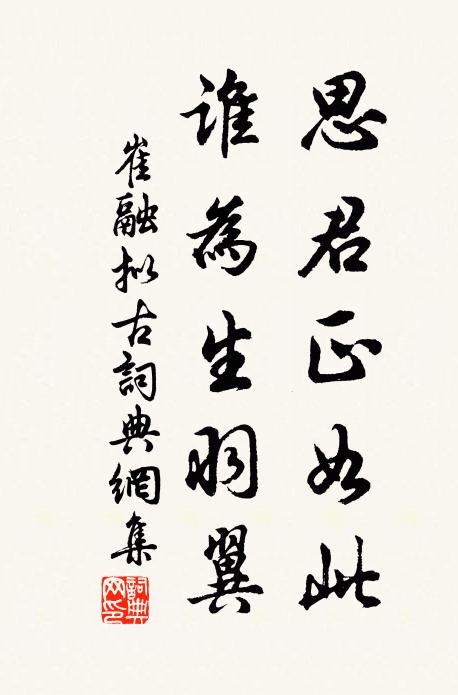 思君正如此
誰為生羽翼
崔融拟古詞典網集
詞典網印